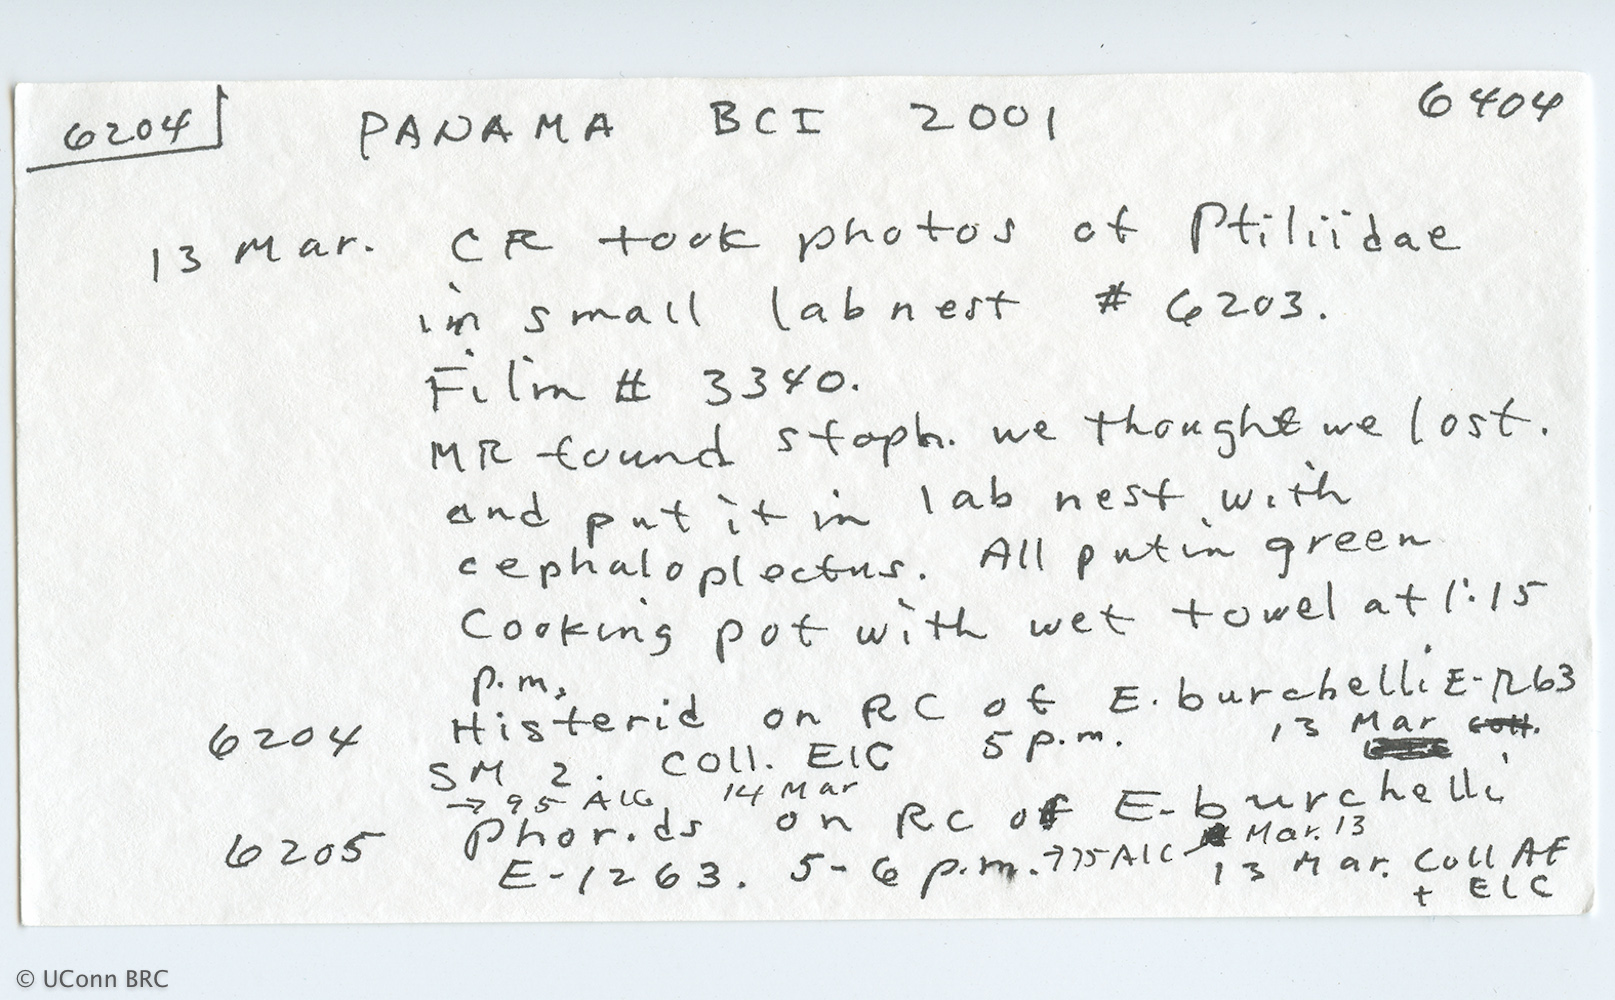 6204 PANAMA BCI 2001 6404
13 Mar. CR took photos of Ptiliidae
in small lab nest # 6203.
Film # 3340.
MR found staph. we thought we lost.
and put it in lab nest with
cephaloplectus. All put in green
Cooking pot with wet towel at 1:15
p.m.
6204 Histerid on RC of E. burchelli E-1263
SM 2. Coll. EIC 5 p.m. 13 Mar
→ 95 AlC 14 Mar
6205 Phorids on RC of E. burchelli
E-1263. 5-6 p.m. → 75 AlC Mar. 13
13 Mar. Coll AF
+ EIC
© UConn BRC